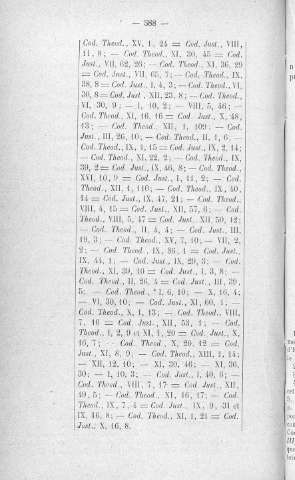 — 588 —
Cod. Theod., XV, 1, 24 = Cod. Just., VIII,
11, 8; — Cod. Theod., XI, 30, 45 = Cod.
Just., VII, 62, 26; — Cod. Theod., XI, 36, 29
= Cod. Just., VII, 65, 7; — Cod. Theod., IX,
38, 8 = Cod. Just., I, 4, 3; — Cod. Theod., VI,
30, 8 = Cod. Just., XII, 23, 8; — Cod. Theod.,
VI, 30, 9; — I, 10, 2; — VIII, 5, 46; —
Cod. Theod., XI, 16, 16 = Cod. Just., X, 48,
13; — Cod. Theod., XII, 1, 109; — Cod.
Just., III, 26, 10; — Cod. Theod., II, 1, 6;
Cod. Theod., IX, 1, 15 = Cod. Just., IX, 2, 14;
— Cod. Theod., XI, 22, 2; — Cod. Theod., IX,
39, 2 = Cod. Just., IX, 46, 8; — Cod. Theod.,
XVI, 10, 9 = Cod. Just., I, 11, 2; — Cod.
Theod., XII, 1, 110; — Cod. Theod., IX, 40,
14 = Cod. Just., IX, 47, 21; — Cod. Theod.,
VIII, 4, 15 = Cod. Just., XII, 57, 6; — Cod.
Theod., VIII, 5, 47 = Cod. Just., XII, 50, 12;
— Cod. Theod., II, 4, 4; — Cod. Just., III,
19, 3; — Cod. Theod., XV, 7, 10; — VII, 2,
2; — Cod. Theod., IX, 36, 1 = Cod. Just.,
IX, 44, 1; — Cod. Just., IX, 29, 3; — Cod.
Theod., XI, 39, 10 = Cod. Just., I, 3, 8; —
Cod. Theod., II, 26, 4 = Cod. Just., III, 39,
5; — Cod. Theod., I, 6, 10; — X, 16, 4;
— VI, 30, 10; — Cod. Just., XI, 60, 1;
Cod. Theod., X, 1, 13; — Cod. Theod., VIII,
7, 16 = Cod. Just., XII, 53, 1; — Cod.
Theod., I, 2, 9 et XI, 1, 20 = Cod. Just., X,
16, 7; — Cod. Theod., X, 20, 12 = Cod.
Just., XI, 8, 9; — Cod. Theod., XIII, 1, 14;
— XII, 12, 10; — XI, 30, 46; — XI, 36,
30; — I, 10, 3; — Cod. Just., I, 40, 6; —
Cod. Theod., VIII, 7, 17 = Cod. Just., XII,
49, 5; — Cod. Theod., XI, 16, 17; — Cod.
Theod., IX, 7, 4 = Cod. Just., IX, 9, 31 et
IX, 46, 8; — Cod. Theod., XI, 1, 21 = Cod.
Just., X, 16, 8.